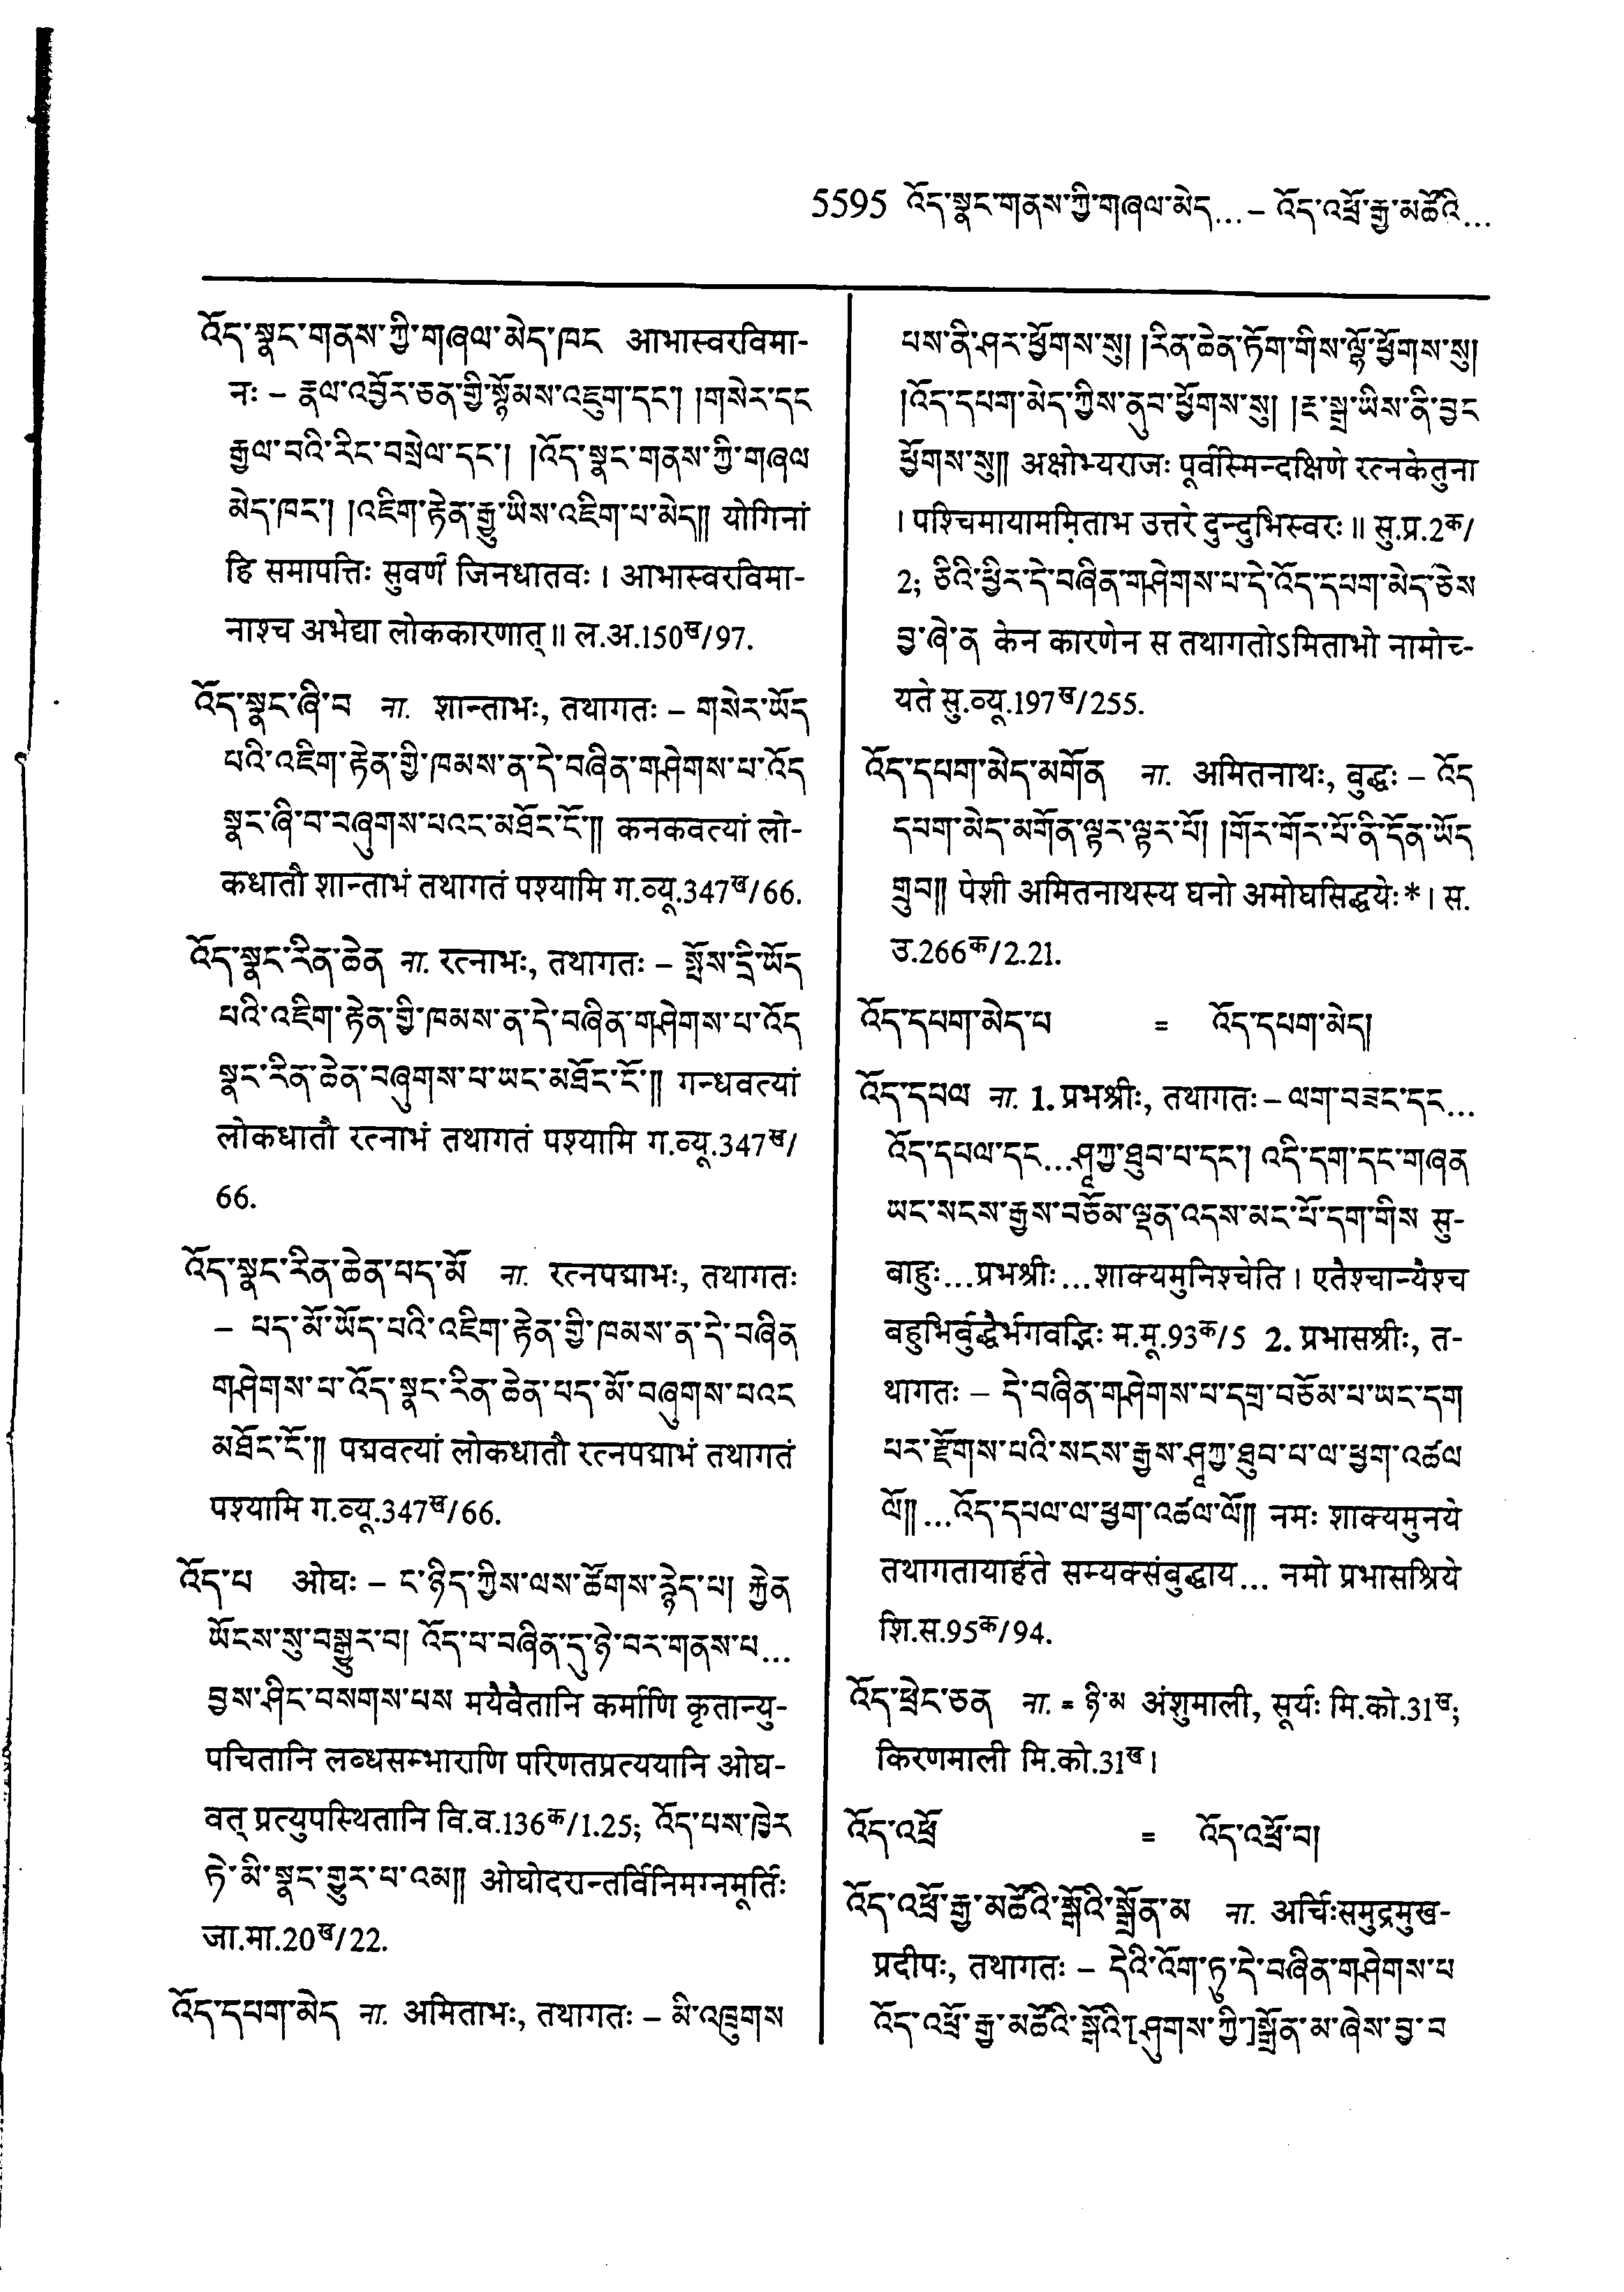 5595 འོད་སྣང་གནས་ཀྱི་གཞལ་མེད...– འོད་འཕྲོ་རྒྱ་མཚོའི...
འོད་སྣང་གནས་ཀྱི་གཞལ་མེད་ཁང आभास्वरविमा-
नः – རྣལ་འབྱོར་ཅན་གྱི་སྙོམས་འཇུག་དང་། །གསེར་དང
རྒྱལ་བའི་རིང་བསྲེལ་དང་། །འོད་སྣང་གནས་ཀྱི་གཞལ
མེད་ཁང་། །འཇིག་རྟེན་རྒྱུ་ཡིས་འཇིག་པ་མེད།། योगिनां
हि समापत्तिः सुवर्णं जिनधातवः । आभास्वरविमा-
नाश्च अभेद्या लोककारणात् ॥ ल.अ.150ख/97.
འོད་སྣང་ཞི་བ ना. शान्ताभः, तथागतः – གསེར་ཡོད
པའི་འཇིག་རྟེན་གྱི་ཁམས་ན་དེ་བཞིན་གཤེགས་པ་འོད
སྣང་ཞི་བ་བཞུགས་པའང་མཐོང་ངོ་།། कनकवत्यां लो-
कधातौ शान्ताभं तथागतं पश्यामि ग.व्यू.347ख/66.
འོད་སྣང་རིན་ཆེན ना. रत्नाभः, तथागतः – སྤོས་དྲི་ཡོད
པའི་འཇིག་རྟེན་གྱི་ཁམས་ན་དེ་བཞིན་གཤེགས་པ་འོད
སྣང་རིན་ཆེན་བཞུགས་པ་ཡང་མཐོང་ངོ་།། गन्धवत्यां
लोकधातौ रत्नाभं तथागतं पश्यामि ग.व्यू.347ख/
66.
འོད་སྣང་རིན་ཆེན་པད་མོ ना. रत्नपद्माभः, तथागतः
– པད་མོ་ཡོད་པའི་འཇིག་རྟེན་གྱི་ཁམས་ན་དེ་བཞིན
གཤེགས་པ་འོད་སྣང་རིན་ཆེན་པད་མོ་བཞུགས་པའང
མཐོང་ངོ་།། पद्मवत्यां लोकधातौ रत्नपद्माभं तथागतं
पश्यामि ग.व्यू.347ख/66.
འོད་པ ओघः – ང་ཉིད་ཀྱིས་ལས་ཚོགས་རྙེད་པ། རྐྱེན
ཡོངས་སུ་བསྒྱུར་བ། འོད་པ་བཞིན་དུ་ཉེ་བར་གནས་པ...
བྱས་ཤིང་བསགས་པས मयैवैतानि कर्माणि कृतान्यु-
पचितानि लब्धसम्भाराणि परिणतप्रत्ययानि ओघ-
वत् प्रत्युपस्थितानि वि.व.136क/1.25; འོད་པས་ཁྱེར
ཏེ་མི་སྣང་གྱུར་པ་འམ།། ओघोदरान्तर्विनिमग्नमूर्तिः
जा.मा.20ख/22.
འོད་དཔག་མེད ना. अमिताभः, तथागतः – མི་འཁྲུགས
པས་ནི་ཤར་ཕྱོགས་སུ། །རིན་ཆེན་ཏོག་གིས་ལྷོ་ཕྱོགས་སུ།
།འོད་དཔག་མེད་ཀྱིས་ནུབ་ཕྱོགས་སུ། །རྔ་སྒྲ་ཡིས་ནི་བྱང
ཕྱོགས་སུ།། अक्षोभ्यराजः पूर्वस्मिन्दक्षिणे रत्नकेतुना
। पश्चिमायाममिताभ उत्तरे दुन्दुभिस्वरः ॥ सु.प्र.2क/
2; ཅིའི་ཕྱིར་དེ་བཞིན་གཤེགས་པ་དེ་འོད་དཔག་མེད་ཅེས
བྱ་ཞེ་ན केन कारणेन स तथागतोऽमिताभो नामोच्-
यते सु.व्यू.197ख/255.
འོད་དཔག་མེད་མགོན ना. अमितनाथः, बुद्धः – འོད
དཔག་མེད་མགོན་ལྟར་ལྟར་པོ། །གོར་གོར་པོ་ནི་དོན་ཡོད
གྲུབ།། पेशी अमितनाथस्य घनो अमोघसिद्धयेः*। स.
उ.266क/2.21.
འོད་དཔག་མེད་པ = འོད་དཔག་མེད།
འོད་དཔལ ना. 1. प्रभश्रीः, तथागतः – ལག་བཟང་དང...
འོད་དཔལ་དང...ཤཱཀྱ་ཐུབ་པ་དང་། འདི་དག་དང་གཞན
ཡང་སངས་རྒྱས་བཅོམ་ལྡན་འདས་མང་པོ་དག་གིས सु-
बाहुः...प्रभश्रीः...शाक्यमुनिश्चेति । एतैश्चान्यैश्च
बहुभिर्बुद्धैर्भगवद्भिः म.मू.93क/5 2. प्रभासश्रीः, त-
थागतः – དེ་བཞིན་གཤེགས་པ་དགྲ་བཅོམ་པ་ཡང་དག
པར་རྫོགས་པའི་སངས་རྒྱས་ཤཱཀྱ་ཐུབ་པ་ལ་ཕྱག་འཚལ
ལོ།།...འོད་དཔལ་ལ་ཕྱག་འཚལ་ལོ།། नमः शाक्यमुनये
तथागतायार्हते सम्यक्संबुद्धाय... नमो प्रभासश्रिये
शि.स.95क/94.
འོད་ཕྲེང་ཅན ना. = ཉི་མ अंशुमाली, सूर्यः मि.को.31ख;
किरणमाली मि.को.31ख।
འོད་འཕྲོ = འོད་འཕྲོ་བ།
འོད་འཕྲོ་རྒྱ་མཚོའི་སྒོའི་སྒྲོན་མ ना. अर्चिःसमुद्रमुख-
प्रदीपः, तथागतः – དེའི་འོག་ཏུ་དེ་བཞིན་གཤེགས་པ
འོད་འཕྲོ་རྒྱ་མཚོའི་སྒོའི་[ཤུགས་ཀྱི་]སྒྲོན་མ་ཞེས་བྱ་བ